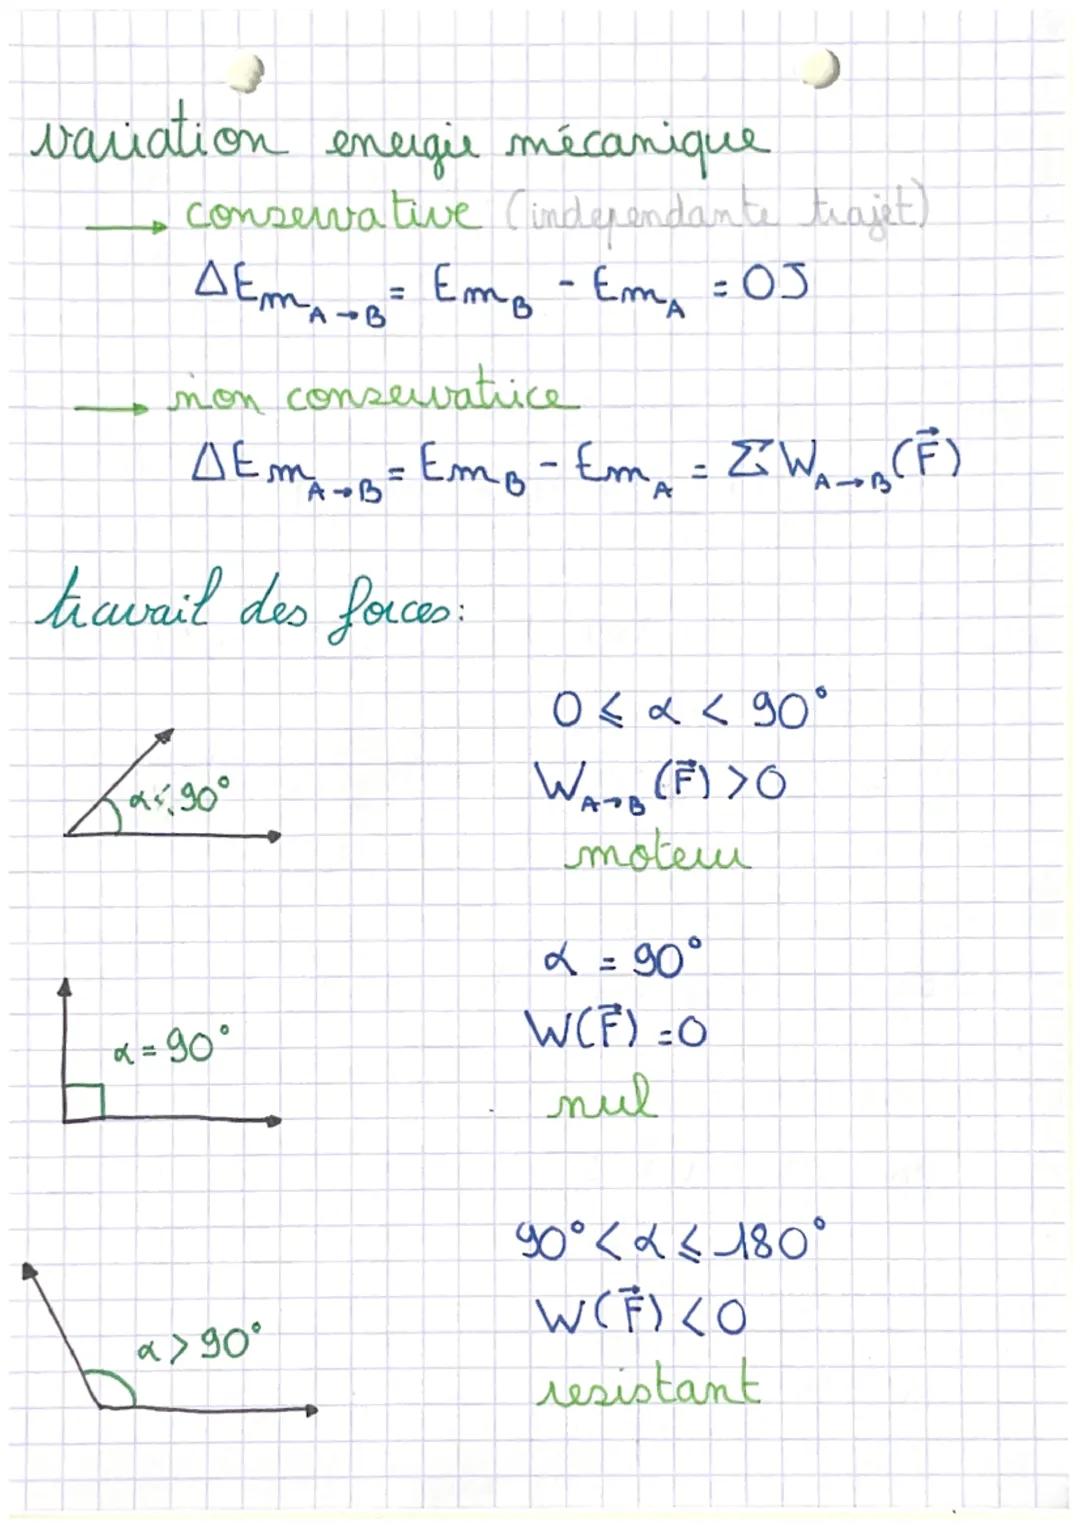 variation energie mécanique
→ conservative (independante trajet)
ΔEm A→B = Em B - Em A = 0J
→ non conservatrice
ΔEm A→B = Em B - Em A = Σ W A→B (F⃗)
travail des forces:
0 ⩽ α < 90°
α ⩽ 90°
W A→B (F⃗) > 0
moteur
α = 90°
α = 90°
W(F⃗) = 0
nul
90° < α ⩽ 180°
W(F⃗) < 0
α > 90°
resistant